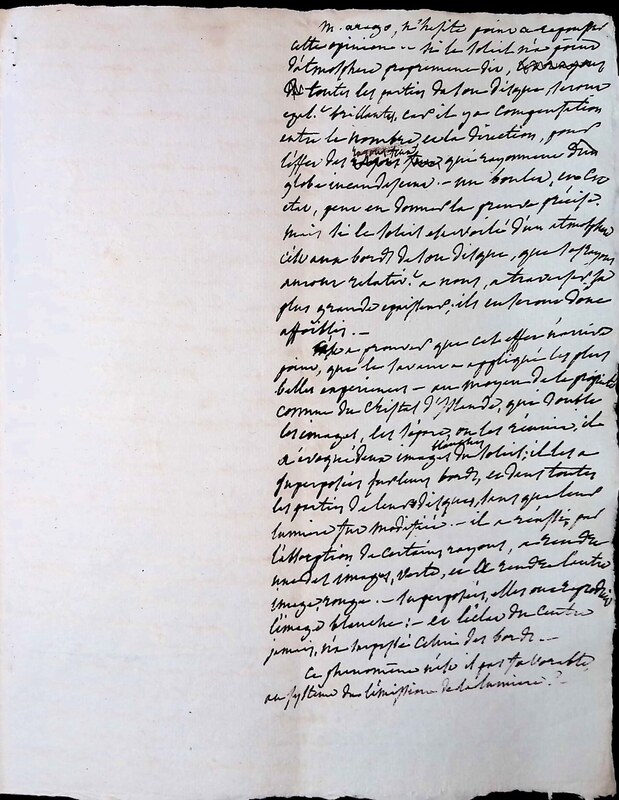 m. arago, n'hesite point a repousser
cette opinion — si le soleil n'a point
d'atmosphere proprement dit,
toutes les parties de son disque, seront
egal.t brillantes, car il y a compensation
entre le nombre et la direction, pour
l'effet des rayons qui rayonnent d'un
globe incandescent. — un boulet, en cet
etat, peut en donner la preuve précise.
mais si le soleil est voilé d'un atmosphere
c'est aux bords de son disque, que les rayons
auront relativ.t a nous, a traverser sa
plus grande epaisseur; ils en seront donc
affoiblis. —
a prouver que cet effet n'arrive
point, que le savant a appliqué les plus
belles experiences — au moyen de la propriété
connue du cristal d'Islande, que double
les images, les sépare, ou les réunit, il
a évoqué deux images blanches du soleil; il les a
superposées sur leurs bords, et dans toutes
les parties de leurs disques, sans que leur
lumiere fut modifiée. — il a réussi, par
l'absorption de certains rayons, a rendre
une des images, verte, et a rendre l'autre
image rouge. — superposées, elles ont reproduit
l'image blanche: — et l'éclat du centre
jamais, n'a surpassé celui des bords —
Ce phenomène n'est il pas favorable,
au système de l'émission de la lumiere? —